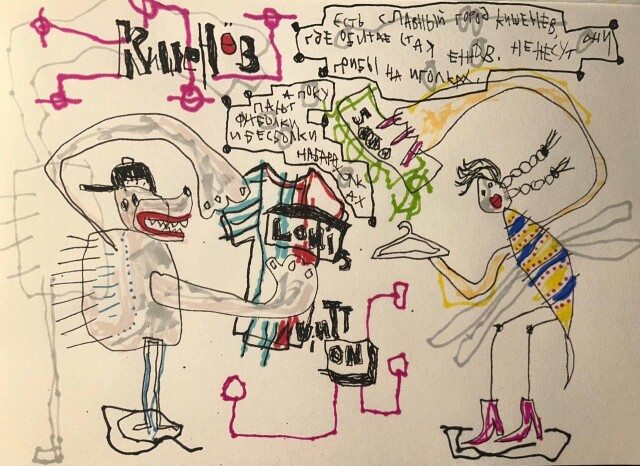 КишеНёв
ЕСТЬ СЛАВНЫЙ ГОРОД КИШЕНЕВ,
ГДЕ ОБИТАЕ СТАЯ ЕЖОВ. НЕ НЕСУТ ОНИ
ГРИБЫ НА ИГОЛКАХ,
А ПОКУ
ПАЮТ
ФУТБОЛКИ
И БЕСБОЛКИ
НА БАРАХ
ОЛК
АХ
LOUI
S
VUITT
ON